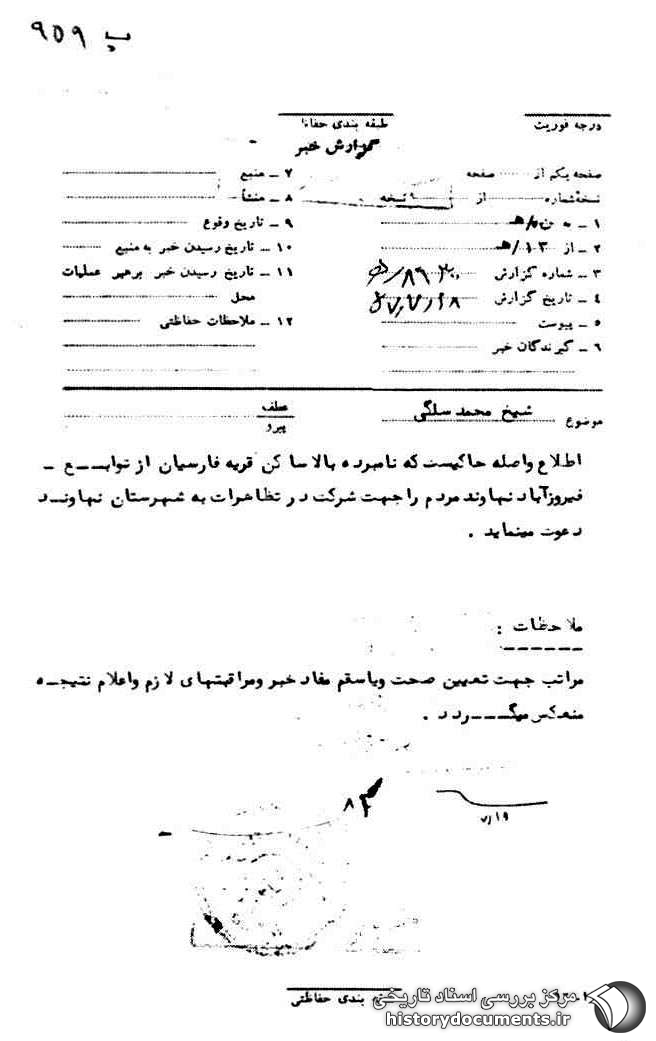 پ ۹۵۹
درجه فوریت
طبقه بندی حفاظتی
گزارش خبر
صفحه یکم از صفحه
نسخه شماره از نسخه
۱ ـ به
۲ ـ از ۱۳/هـ
۳ ـ شماره گزارش
۴ ـ تاریخ گزارش ۵۷٫۷٫۱۸
۵ ـ پیوست
۶ ـ گیرندگان خبر
۷ ـ منبع
۸ ـ منشأ
۹ ـ تاریخ وقوع
۱۰ ـ تاریخ رسیدن خبر به منبع
۱۱ ـ تاریخ رسیدن خبر برهبر عملیات
محل
۱۲ ـ ملاحظات حفاظتی
موضوع شیخ محمد سلگی
عطف
پیرو
اطلاع واصله حاکیست که نامبرده بالا ساکن قریه فارسیان از توابـــع ـ
فیروزآباد نهاوند مردم را جهت شرکت در تظاهرات به شهرستان نهاونـد
دعوت مینماید .
ملاحظات :
مراتب جهت تعیین صحت ویاسقم مفاد خبر ومراقبتهای لازم واعلام نتیجـه
منعکس میگـــردد .
۷٫۱۹
بندی حفاظتی
مرکز بررسی اسناد تاریخی
historydocuments.ir